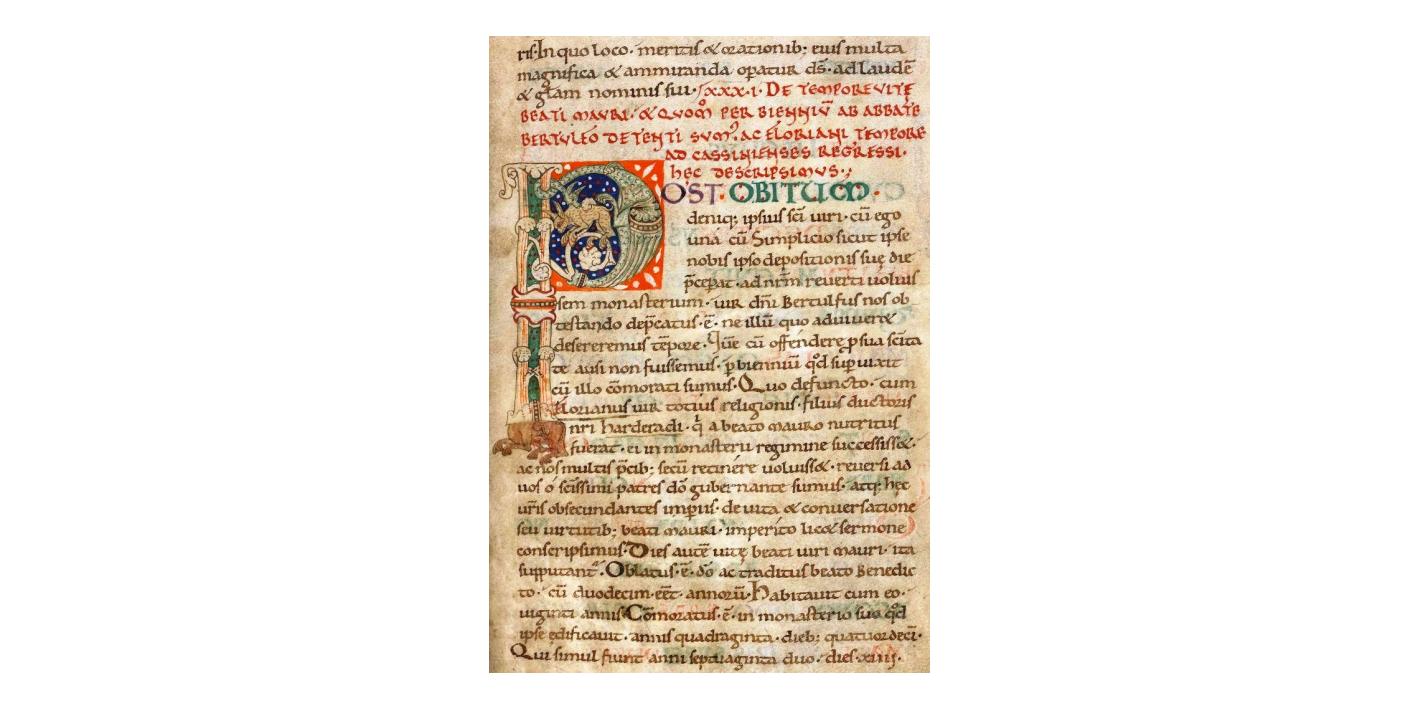 ris. In quo loco. meritis & orationib; eius multa
magnifica & ammiranda op̄atur d̄s. ad laudē
& gl̄am nominis sui. XXX.I. DE TEMPORE VITĘ
BEATI MAVRI. & QVOM̊ PER BIENNIV̄ AB ABBATE
BERTVLFO DETENTI SVM᾿. AC FLORIANI TEMPORE
AD CASSINIENSES REGRESSI.
HEC DESCRIPSIMVS.;
POST OBITUM.
deniq; ipsius sc̄i uiri. cū ego
una cū Simplicio sicut ipse
nobis ipso depositionis suę die
p̄cep̄at. ad nr̄m reuerti uoluis
sem monasterium. uir dn̄i Bertulfus nos ob
testando dep̄catus. ē. ne illū quo aduiueret
desereremus tēpore. cū offendere p sua sc̄ita
te ausi non fuissemus. p bienniū qd sup uixit
cū illo cōmorati sumus. Quo defuncto. cum
Florianus uir totius religionis. filius ductoris
nri harderadi. q̄ a beato mauro nutritus
fuerat. ei in monasterii regimine successiss&.
ac nos multis p̄cib; secū retinere uoluiss&. reuersi ad
uos ó sc̄issimi patres dō gubernante sumus. atq; hęc
ur̄is obsecundantes imp̄iis. de uita & conuersatione
seu uirtutib; beati mauri. imperito lic& sermone
conscripsimus. Dies autē uitę beati uiri mauri. ita
supputant᾿. Oblatus. ē. dō ac traditus beato Benedic
to. cū duodecim. eēt. annorū. Habitauit cum eo.
uiginti annis. Cōmoratus. ē. in monasterio suo qd
ipse ędificauit. annis quadraginta. dieb; quatuordeci.
Qui simul fiunt anni septuaginta duo. dies. xiiij.